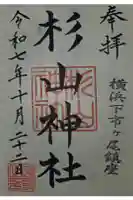 奉拝
横浜下市ヶ尾鎮座
杉山神社
令和七年十月二十二日